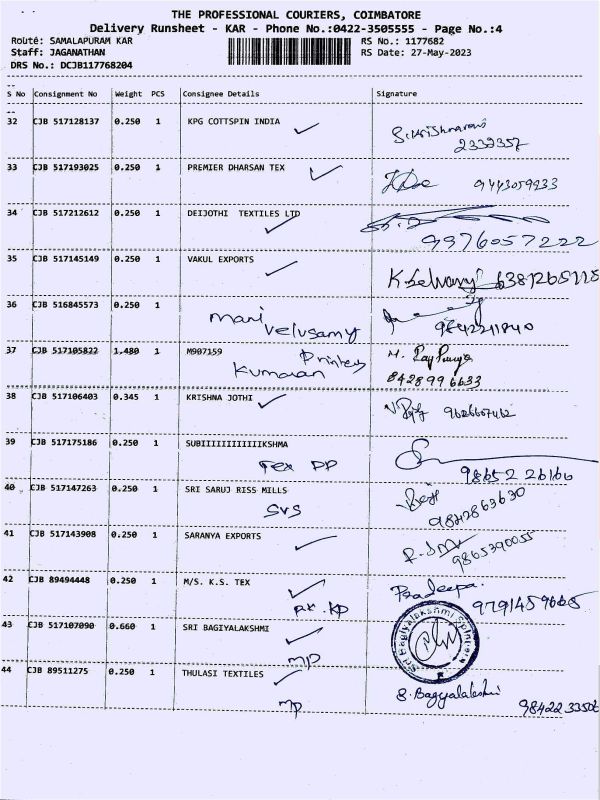 THE PROFESSIONAL COURIERS, COIMBATORE
Delivery Runsheet - KAR - Phone No.:0422-3505555 - Page No.:4
Route: SAMALAPURAM KAR RS No.: 1177682
Staff: JAGANATHAN RS Date: 27-May-2023
DRS No.: DCJB117768204
S No Consignment No Weight PCS Consignee Details Signature
32 CJB 517128137 0.250 1 KPG COTTSPIN INDIA
2332357
33 CJB 517193025 0.250 1 PREMIER DHARSAN TEX
9443059933
34 CJB 517212612 0.250 1 DEIJOTHI TEXTILES LTD
9976057222
35 CJB 517145149 0.250 1 VAKUL EXPORTS
K.Selvaraj 6381265118
36 CJB 516845573 0.250 1
Mari
Velusamy
37 CJB 517105822 1.480 1 M907159
Printers
Kumaran
8428996633
38 CJB 517106403 0.345 1 KRISHNA JOTHI
39 CJB 517175186 0.250 1 SUBIIIIIIIIIIIKSHMA
Tex PP
98652 26166
40 CJB 517147263 0.250 1 SRI SARUJ RISS MILLS
SVS
9842863630
41 CJB 517143908 0.250 1 SARANYA EXPORTS
9865390055
42 CJB 89494448 0.250 1 M/S. K.S. TEX
Pradeepa.
9791459665
43 CJB 517107090 0.660 1 SRI BAGIYALAKSHMI
MP
Sri Bagiyalakshmi Spinners
44 CJB 89511275 0.250 1 THULASI TEXTILES
MP
S. Bagyalakshmi
98422 33506